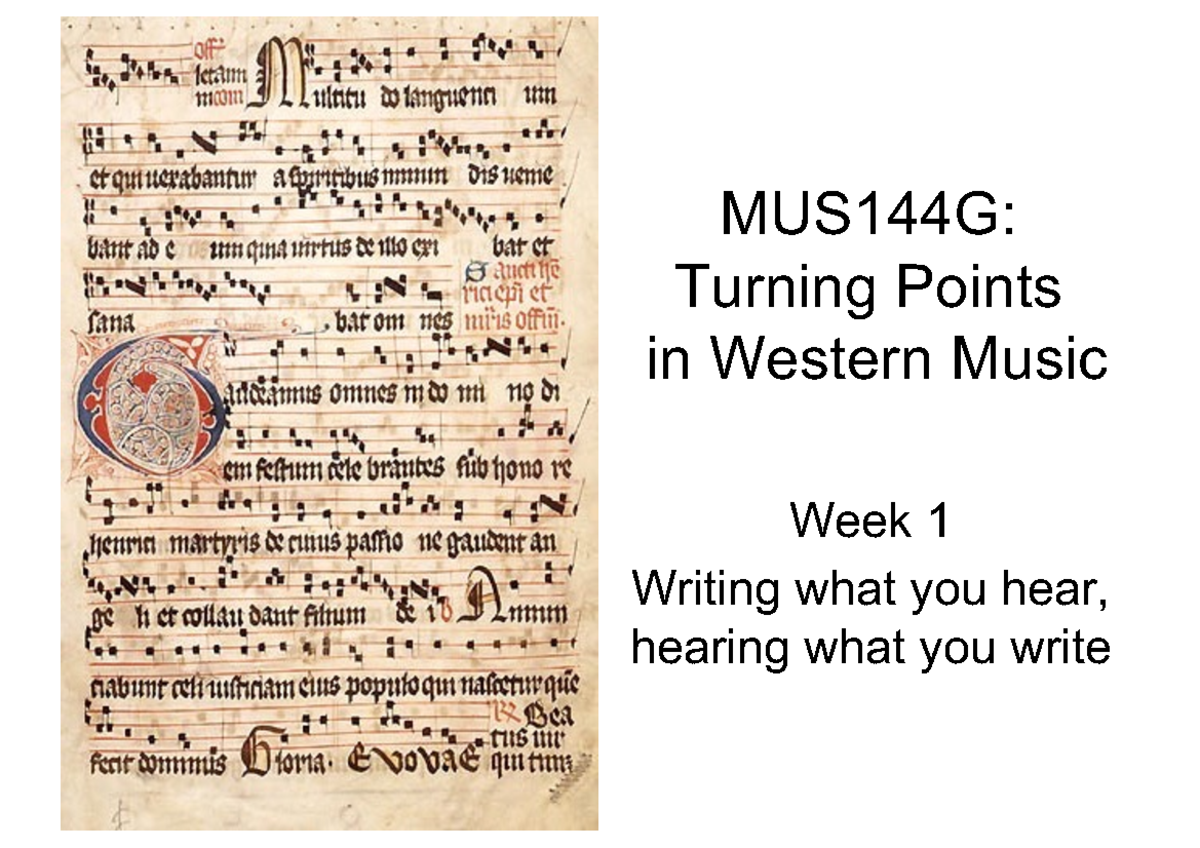 off
letam
m com Multitu do languenti um
et qui uexabantur a spiritibus inmun dis uenie
bant ad e um quia uirtus de illo exi bat et
sana bat om nes
Sancti hē
rici epi et
mr̄is offm̄.
Gaudeamus omnes in do mi no di
em festum cele brantes sub hono re
henrici martyris de cuius passio ne gaudent an
ge li et collau dant filium de i Annun
ciabunt celi iusticiam eius populo qui nascetur quē
fecit dominus Gloria. EVOVAE
Bea
tus uir
qui
MUS144G:
Turning Points
in Western Music
Week 1
Writing what you hear,
hearing what you write